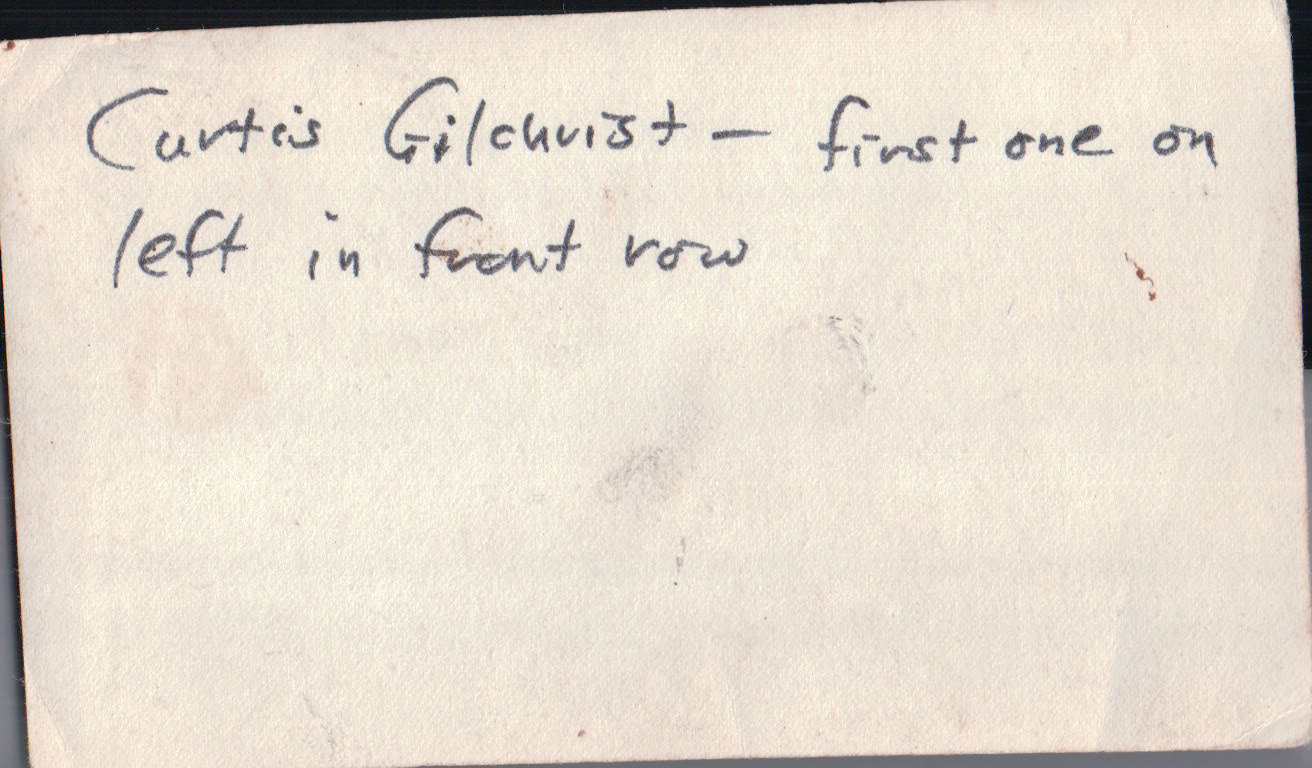 Curtis Gilchrist — first one on
left in front row